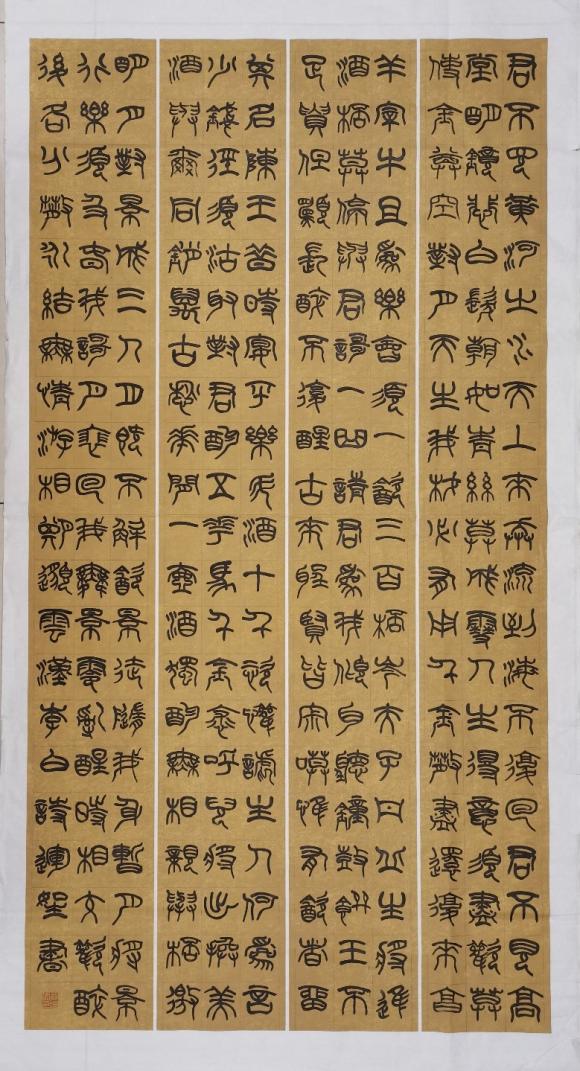 君不見黃河之水天上來奔流到海不復回君不見高
堂明鏡悲白髮朝如青絲暮成雪人生得意須盡歡莫
使金尊空對月天生我材必有用千金散盡還復來烹
羊宰牛且為樂會須一飲三百杯岑夫子丹丘生將進
酒杯莫停與君歌一曲請君為我傾耳聽鐘鼓饌玉不
足貴但願長醉不復醒古來聖賢皆寂寞惟有飲者留
其名陳王昔時宴平樂斗酒十千恣歡謔主人何為言
少錢徑須沽取對君酌五花馬千金裘呼兒將出換美
酒與爾同銷萬古愁花間一壺酒獨酌無相親舉杯邀
明月對景成三人月既不解飲景徒隨我身暫月將景
行樂須及春我歌月裴回我舞景零亂醒時相交歡醉
後各分散永結無情游相期邈雲漢李白詩運書